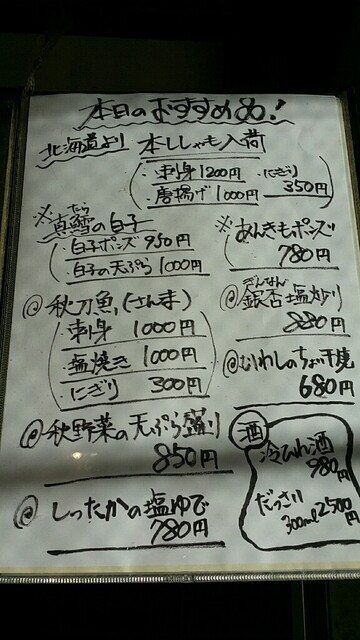 本日のおすすめ品!
北海道より 本ししゃも入荷
・刺身 1200円 ・にぎり
・唐揚げ 1000円 350円
たら
※真鱈の白子
・白子ポンズ 950円
・白子の天ぷら 1000円
※あんきもポンズ
780円
@秋刀魚(さんま)
・刺身 1000円
・塩焼き 1000円
・にぎり 300円
ぎんなん
@銀杏塩炒り
880円
@むいわしのちょい干焼
680円
@秋野菜の天ぷら盛り
850円
@しったかの塩ゆで
780円
酒
冷ひれ酒
980円
だっさい
300ml 2500円